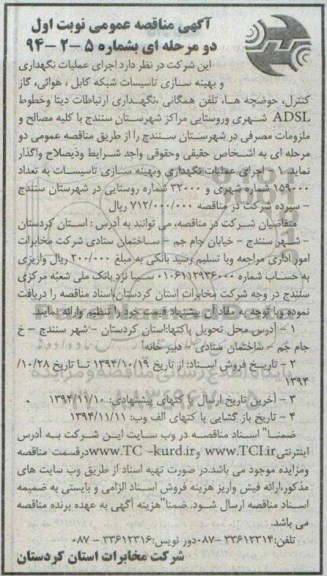 آگهی مناقصه عمومی نوبت اول
دو مرحله ای بشماره ۵-۲-۹۴
این شرکت در نظر دارد اجرای عملیات نگهداری
و بهینه سازی تاسیسات شبکه کابل ، هوائی، گاز
کنترل، حوضچه ها، تلفن همگانی ،نگهداری ارتباطات دیتا وخطوط
ADSL شهری وروستایی مراکز شهرستان سنندج با کلیه مصالح و
ملزومات مصرفی در شهرستان سنندج را از طریق مناقصه عمومی دو
مرحله ای به اشخاص حقیقی وحقوقی واجد شرایط وذیصلاح واگذار
نماید. - اجرای عملیات نگهداری وبهینه سازی تاسیسات به تعداد
۱۵۹۰۰۰ شماره شهری و ۳۲۰۰۰ شماره روستایی در شهرستان سنندج
- سپرده شرکت در مناقصه ۷۱۲/۰۰۰/۰۰۰ ریال
متقاضیان شرکت در مناقصه، می توانند به آدرس : استان کردستان
- شهر سنندج - خیابان جام جم - ساختمان ستادی شرکت مخابرات
امور اداری مراجعه وبا تسلیم رسید بانکی به مبلغ ۲۰۰/۰۰۰ ریال واریزی
به حساب شماره ۰۱۰۶۱۱۲۹۳۶۰۰۰ سیبا نزد بانک ملی شعبه مرکزی
سنندج در وجه شرکت مخابرات استان کردستان،اسناد مناقصه را دریافت
نموده وبا توجه به مفاد آن پیشنهاد قیمت خود را تنظیم وارائه نمایند.
۱ - آدرس محل تحویل پاکتها:استان کردستان - شهر سنندج - خ
جام جم - ساختمان ستادی - دبیر خانه
۲ - تاریخ فروش اسناد: از تاریخ ۱۳۹۴/۱۰/۱۹ تا تاریخ ۱۰/۲۸/
۱۳۹۴
۳ - آخرین تاریخ ارسال پاکتهای پیشنهادی: ۱۳۹۴/۱۱/۱۰
۴ - تاریخ باز گشایی پا کتهای الف وب: ۱۳۹۴/۱۱/۱۱
ضمنا" اسناد مناقصه در وب سایت این شرکت به آدرس
اینترنتی www.TCI.ir و www.TC -kurd.ir درقسمت مناقصه
ومزایده موجود می باشد.در صورت تهیه اسناد از طریق وب سایت های
مذکور،ارائه فیش واریز هزینه فروش اسناد الزامی و بایستی به ضمیمه
اسناد مناقصه ارسال شود. ضمنا"هزینه آگهی به عهده برنده مناقصه
می باشد.
تلفن:۳۳۶۱۲۳۱۴-۰۸۷دور نویس:۳۳۶۱۲۳۱۶ - ۰۸۷
شرکت مخابرات استان کردستان